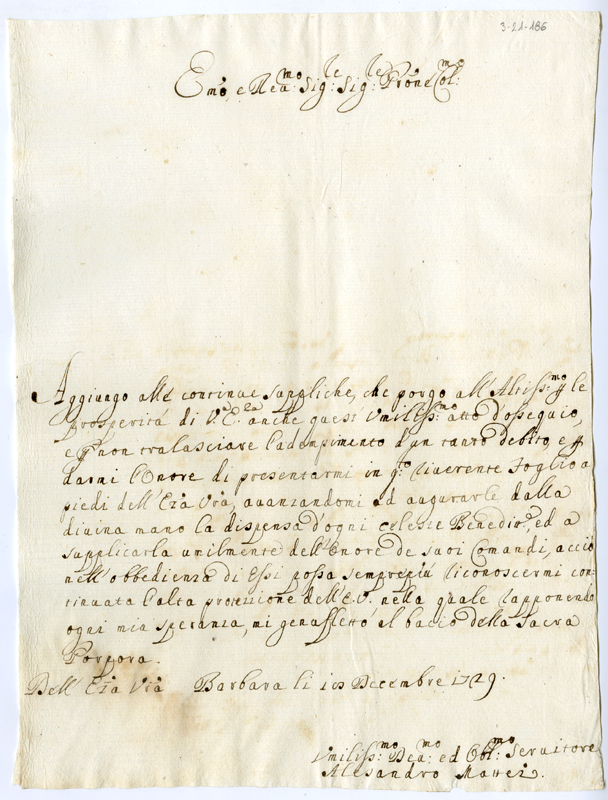 3-21-186
Emo, e Reu:mo Sig:re Sig:re Prōne Col:mo
Aggiungo alle continue suppliche, che porgo all'Altiss:mo p le
prosperità di V.a E.za anche quest'Vmiliss:mo atto d'ossequio,
e p non tralasciare l'adempimento d'un tanto debito, e p
darmi l'onore di presentarmi in q.o riuerente foglio a
piedi dell'Eza Vra, auanzandomi ad augurarle dalla
diuina mano la dispensa d'ogni celeste Benediz.e, ed a
supplicarla umilmente dell'onore de suoi Comandi, acciò
nell'obbedienza di Essi possa semprepiù riconoscermi con-
tinuata l'alta protezione dell'E.V. nella quale rapponendo
ogni mia speranza, mi genufletto al bacio della Sacra
Porpora.
Dell'Eza Vra Barbara li Decembre 1729.
Vmiliss:mo Deu:mo ed Obl:mo Seruitore
Alesandro Mattei.